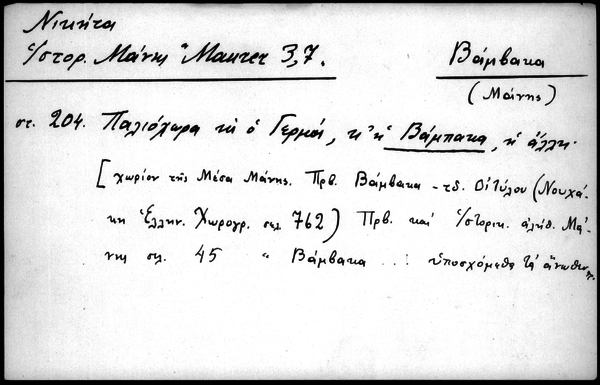 Νικήτα
Ἱστορ. Μάνης "Mauret 3,7.
Βάμβακα
(Μάνης)
στ. 204. Παλιόχωρα κι ὁ Γερμάς, κ' ἡ Βάμπακα, ἡ ἄλλη·
[χωρίον τῆς Μέσα Μάνης. Πρβ. Βάμβακα - τδ. Οἰτύλου (Νουχά-
κη Ἑλλην. Χωρογρ. σελ 762) Πρβ. καὶ Ἱστορικ. ἀλήθ. Μά-
νης σελ. 45 " Βάμβακα ..: ὑποσχόμεθα τὰ ἄνωθεν